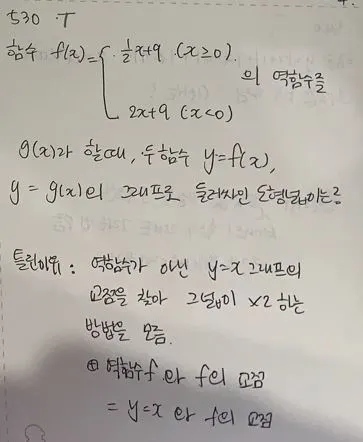 530 T
함수 f(x)= { ½x+9 (x≥0).
의 역함수를
2x+9 (x<0)
g(x)라 할때, 두함수 y=f(x),
y = g(x)의 그래프로 둘러싸인 도형넓이는?
틀린이유 : 역함수가 아닌 y=x 그래프의
교점을 찾아 그넓이 ×2 하는
방법을 모름.
⊕ 역함수f 와 f의 교점
= y=x 와 f의 교점